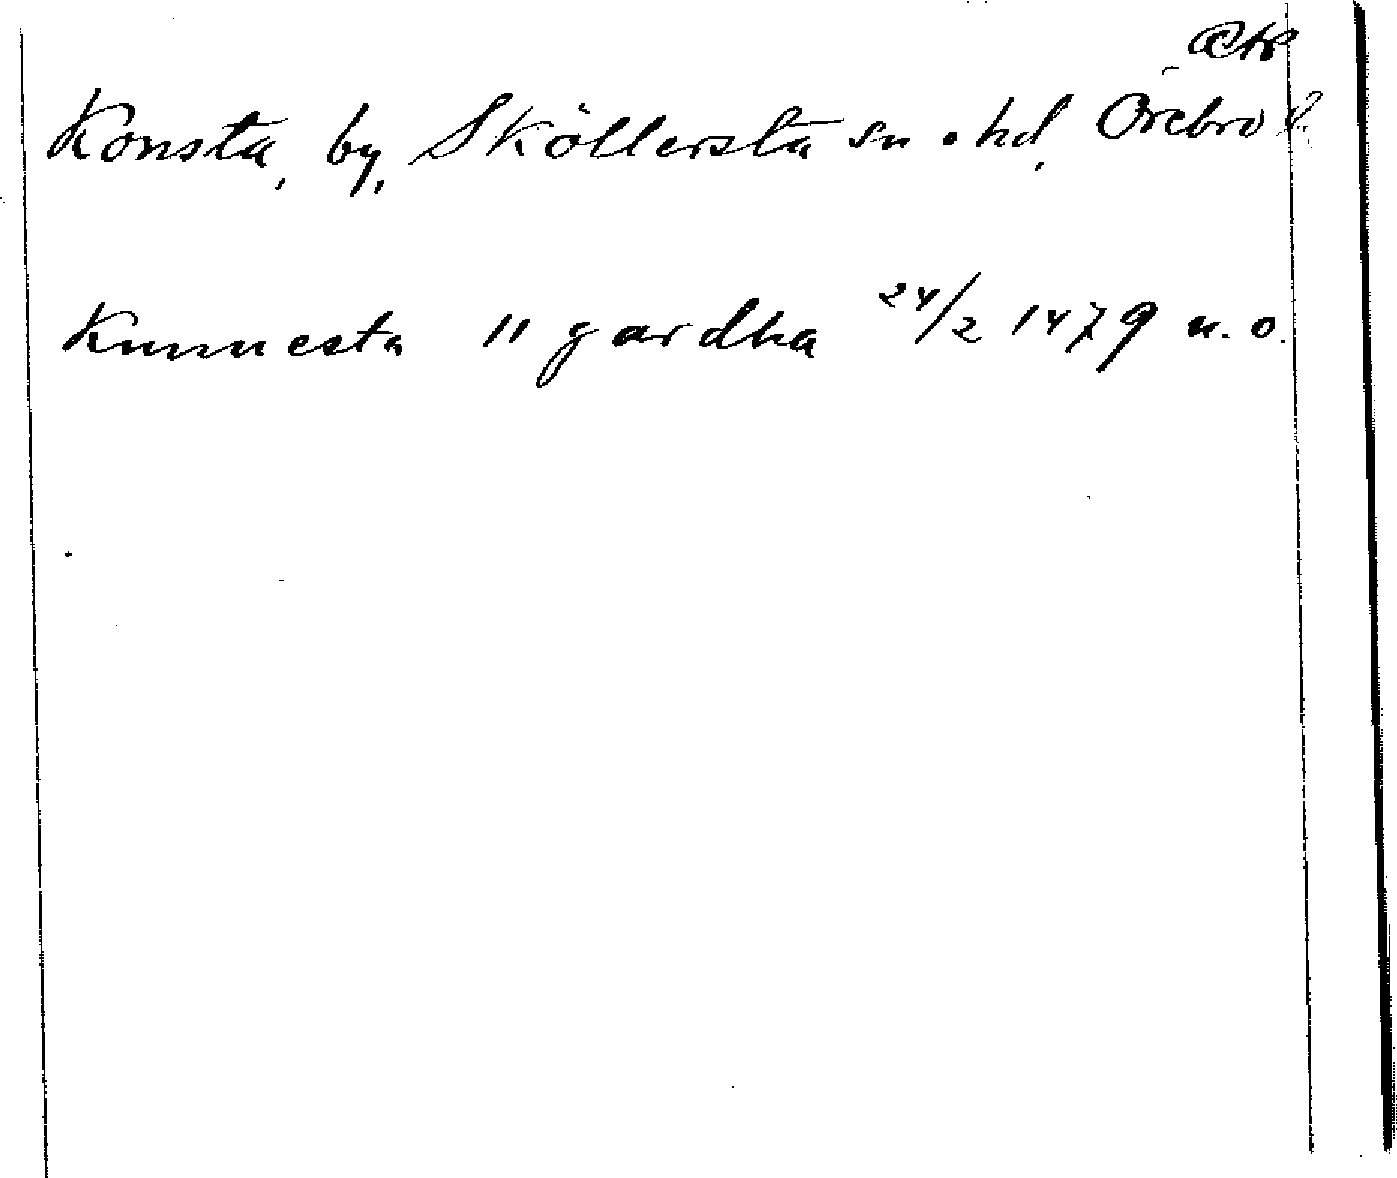 Konsta, by, Sköllersta sn o hd, Örebro l.
Kunnesta 11 gardha 24/2 1479 n. o.